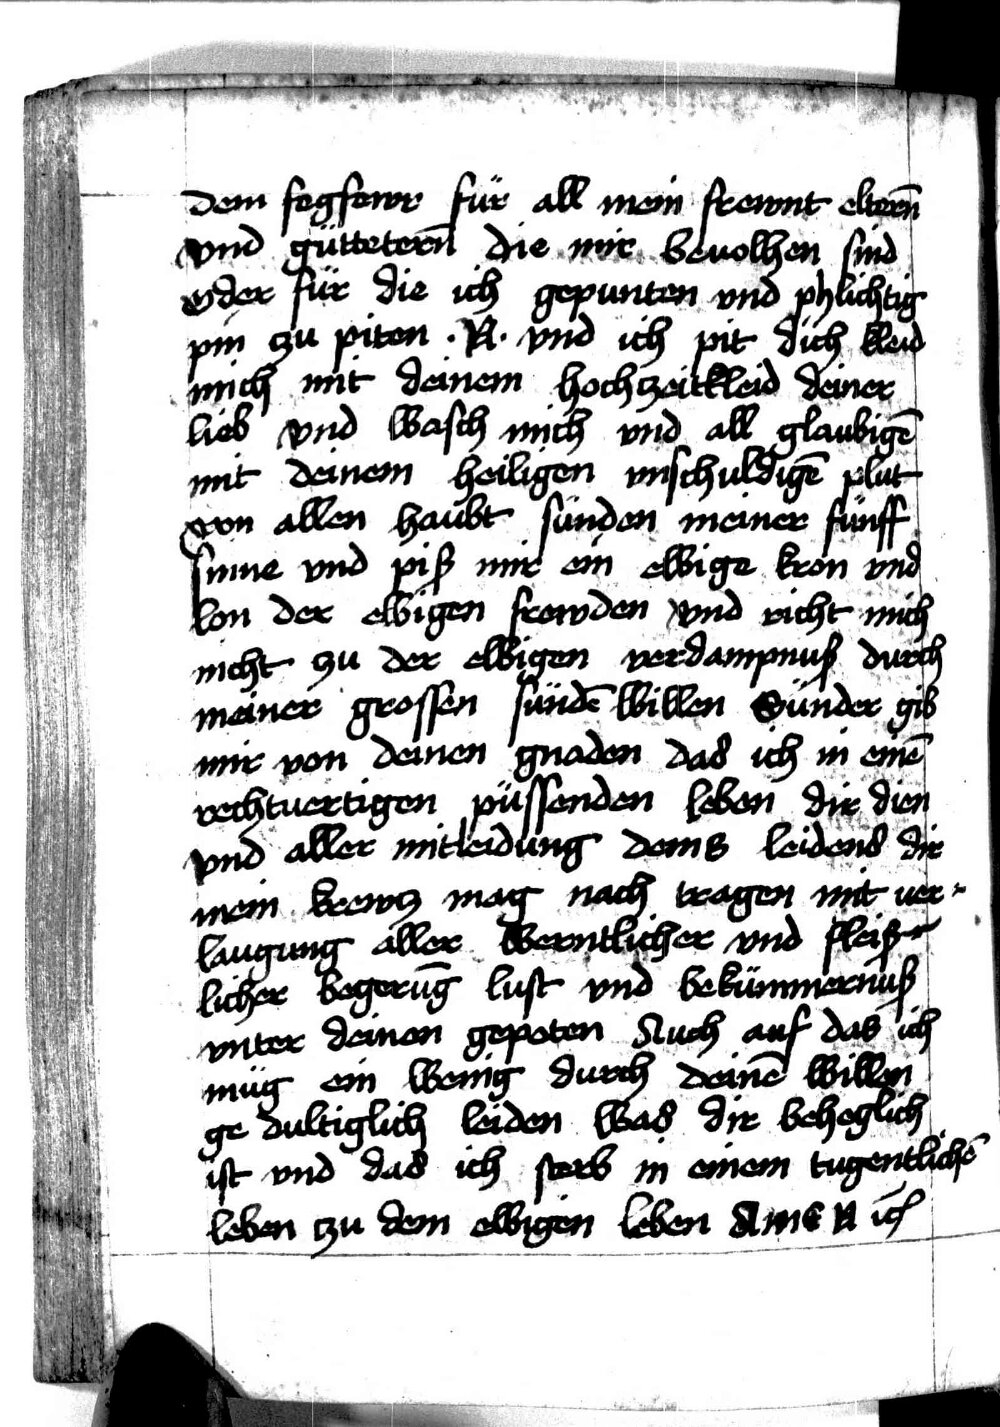 dem fegfewr für all mein frewnt elternn̄
vnd güttetern̄ die mir beuolhen sind
oder für die ich gepunten vnd phlichtig
pin zu piten · N · vnd ich pit dich kleid
mich mit deinem hochzeitkleid deiner
lieb vnd wasch mich vnd all glaubigē
mit deinem heiligen vnschuldigē plut
von allen haubt sünden meiner fünff
sinne vnd piß mir ein ewige kron vnd
lon der ewigen frewden vnd richt mich
nicht zu der ewigen verdampnuß durch
meiner grossen sündē willen Sünder gib
mir von deinen gnaden das ich in einē
rechtuertigen püssenden leben dir dien
vnd aller mitleidung deins leidens dir
mein krewtz mag nach tragen mit ver-
laugung aller werntlicher vnd fleisch
licher begerūg lust vnd bekümmernuß
vnter deinen gepoten Auch auf das ich
müg ein wenig durch deinē willen
ge dultiglich leiden was dir beheglich
ist vnd das ich sterb in einem tugentlichē
leben zu dem ewigen leben AmeN ich